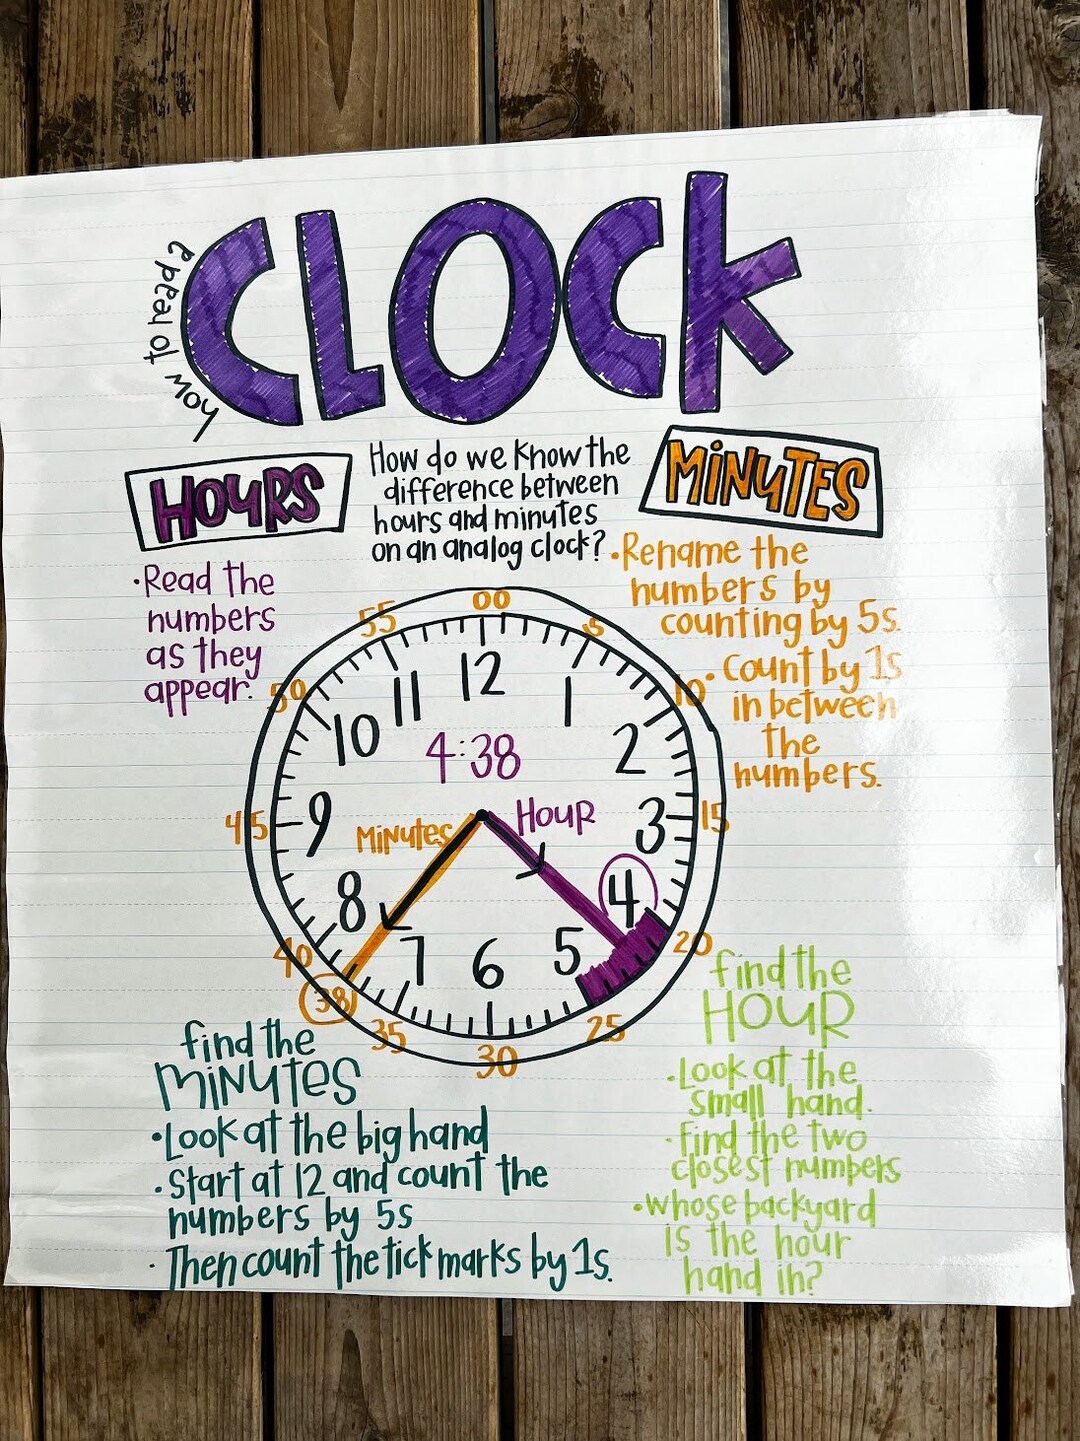 how to read a
CLOCK
HOURS
How do we know the
difference between
hours and minutes
on an analog clock?
MINUTES
• Read the
numbers
as they
appear.
• Rename the
numbers by
counting by 5s.
• count by 1s
in between
the
numbers.
00
5
10
15
20
25
30
35
38
40
45
50
55
12
1
2
3
4
5
6
7
8
9
10
11
4:38
Minutes
Hour
find the
MINUTES
• Look at the big hand
• Start at 12 and count the
numbers by 5s
• Then count the tick marks by 1s.
find the
HOUR
• Look at the
small hand.
• find the two
closest numbers
• whose backyard
is the hour
hand in?